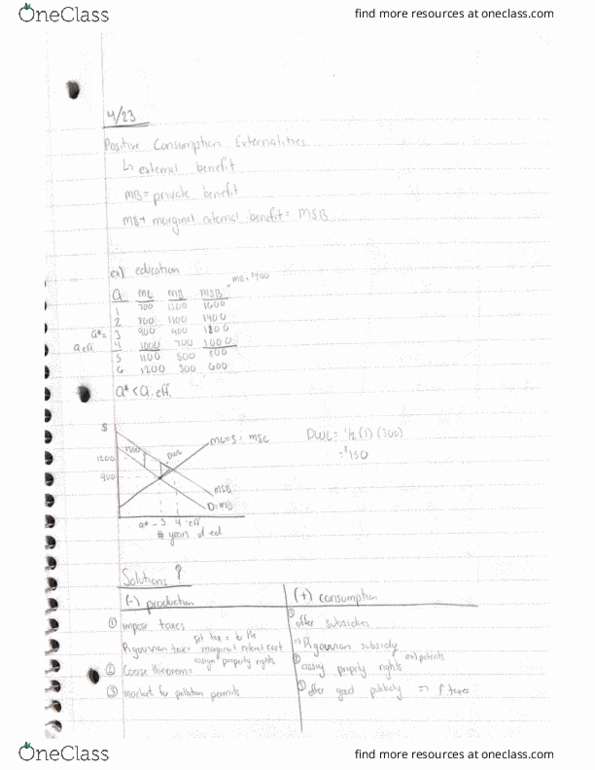 OneClass
find more resources at oneclass.com
4/23
Positive Consumption Externalities
↳ external benefit
MB = private benefit
MB + marginal external benefit = MSB
ex) education
Q MC MB MSB
1 700 1300 1600
2 800 1100 1400
Q* = 3 900 900 1200
Q eff 4 1000 700 1000
5 1100 500 800
6 1200 300 600
Q* < Q eff.
$
MC = S = MSC
DWL = 1/2 (1) (300)
= $150
1200
300
DWL
900
MSB
D = MB
Q* = 3 4 = eff
# years of ed
Solutions?
(-) production
(+) consumption
① impose taxes
① offer subsidies
set tax = to the
Pigouvian tax = marginal external cost
⇒ Pigouvian subsidy
assign property rights
② Coase theorem =
② assign property rights
③ market for pollution permits
③ offer good publicly ⇒ ↑ taxes
OneClass
find more resources at oneclass.com